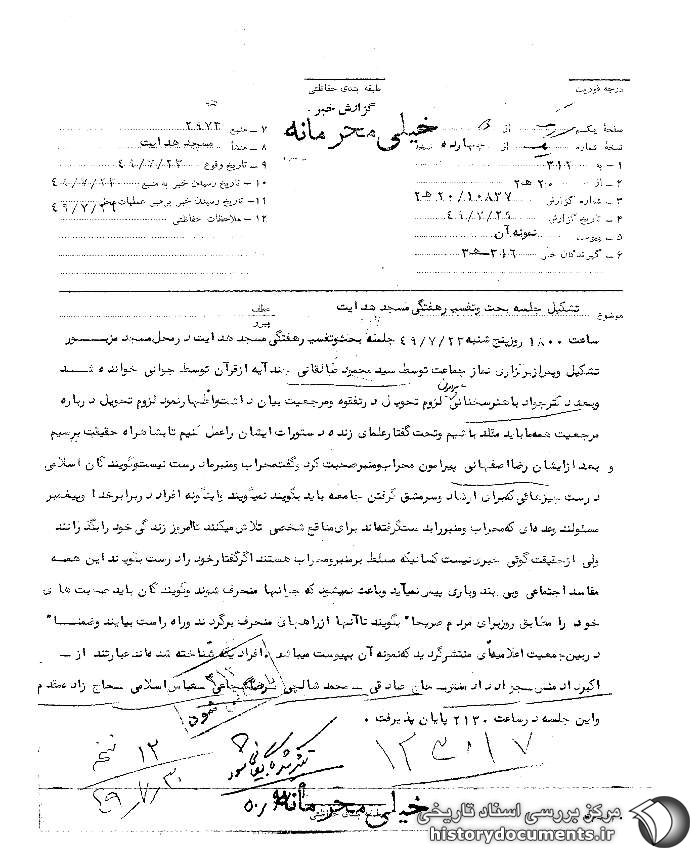 درجه فوریت
طبقه بندی حفاظتی
گزارش خبر
خیلی محرمانه
صفحهٔ یک از
نسخهٔ شماره از چهارده نسخه
۱ – به ۳۱۲
۲ – از ۲۰ هـ ۲
۳ – شماره گزارش ۲۰/۱۰۸۳۷ هـ ۲
۴ – تاریخ گزارش ۴۹/۷/۲۹
۵ – پیوست نمونه آن
۶ – گیرندگان خبر ۳۱۶ – هـ ۳
۷ – منبع ۲۹۷۲
۸ – منشأ مسجد هدایت
۹ – تاریخ وقوع ۴۹/۷/۲۳
۱۰ – تاریخ رسیدن خبر به منبع ۴۹/۷/۲۳
۱۱ – تاریخ رسیدن خبر برهبر عملیات محلی ۴۹/۷/۲۶
۱۲ – ملاحظات حفاظتی
موضوع تشکیل جلسه بحث وتفسیر هفتگی مسجد هدایت
عطف
پیرو
ساعت ۱۸۰۰ روز پنج شنبه ۴۹/۷/۲۳ جلسه بحث وتفسیر هفتگی مسجد هدایت در محل مسجد مزبور
تشکیل وپس از برگزاری نماز جماعت توسط سید محمود طالقانی چند آیه از قرآن توسط جوانی خوانده شد
وبعد دکتر جواد باهنر سخنانی پیرامون لزوم تحویل در تفقه ومرجعیت بیان داشت واظهار نمود لزوم تحویل درباره
مرجعیت همه ما باید مقلد باشیم وتحت گفتار علمای زنده دستورات ایشان را عمل کنیم تا بشاهراه حقیقت برسیم
و بعد از ایشان رضا اصفهانی پیرامون محراب ومنبر صحبت کرد وگفت محراب ومنبر ما درست نیست وگویندگان اسلامی
درست چیزهائی که برای ارشاد وسرمشق گرفتن جامعه باید بگویند نمیگویند واینگونه افراد در برابر خدا وپیغمبر
مسئولند وعده ای که محراب ومنبر را بدست گرفته اند برای منافع شخصی تلاش میکنند تا امروز زندگی خود را بگذرانند
ولی از حقیقت گوئی خبری نیست کسانیکه مسلط بر منبر ومحراب هستند اگر گفتار خود را درست بگویند این همه
مفاسد اجتماعی وبی بند وباری پیش نمیآید وباعث نمیشود که جوانها منحرف شوند وگویندگان باید صحبت های
خود را مطابق روز برای مردم صریحا" بگویند تا آنها از راههای منحرف برگردند وراه راست بیایند وضمنا"
در بین جمعیت اعلامیه ای منتشر گردید که نمونه آن بپیوست میباشد وافرادیکه شناخته شده اند عبارتند از –
اکبر دادمنش – جزار دادمنش – خان صادقی – محمد شالچی – رضا – عباس اسلامی – حاج زاده مقدم
واین جلسه در ساعت ۲۱۳۰ پایان پذیرفت .
۳۱۲
شود
۱۲ نسخه
۴۹/۷/۳۰
۱۳۰۱۷
خیلی محرمانه
مرکز بررسی اسناد تاریخی
historydocuments.ir